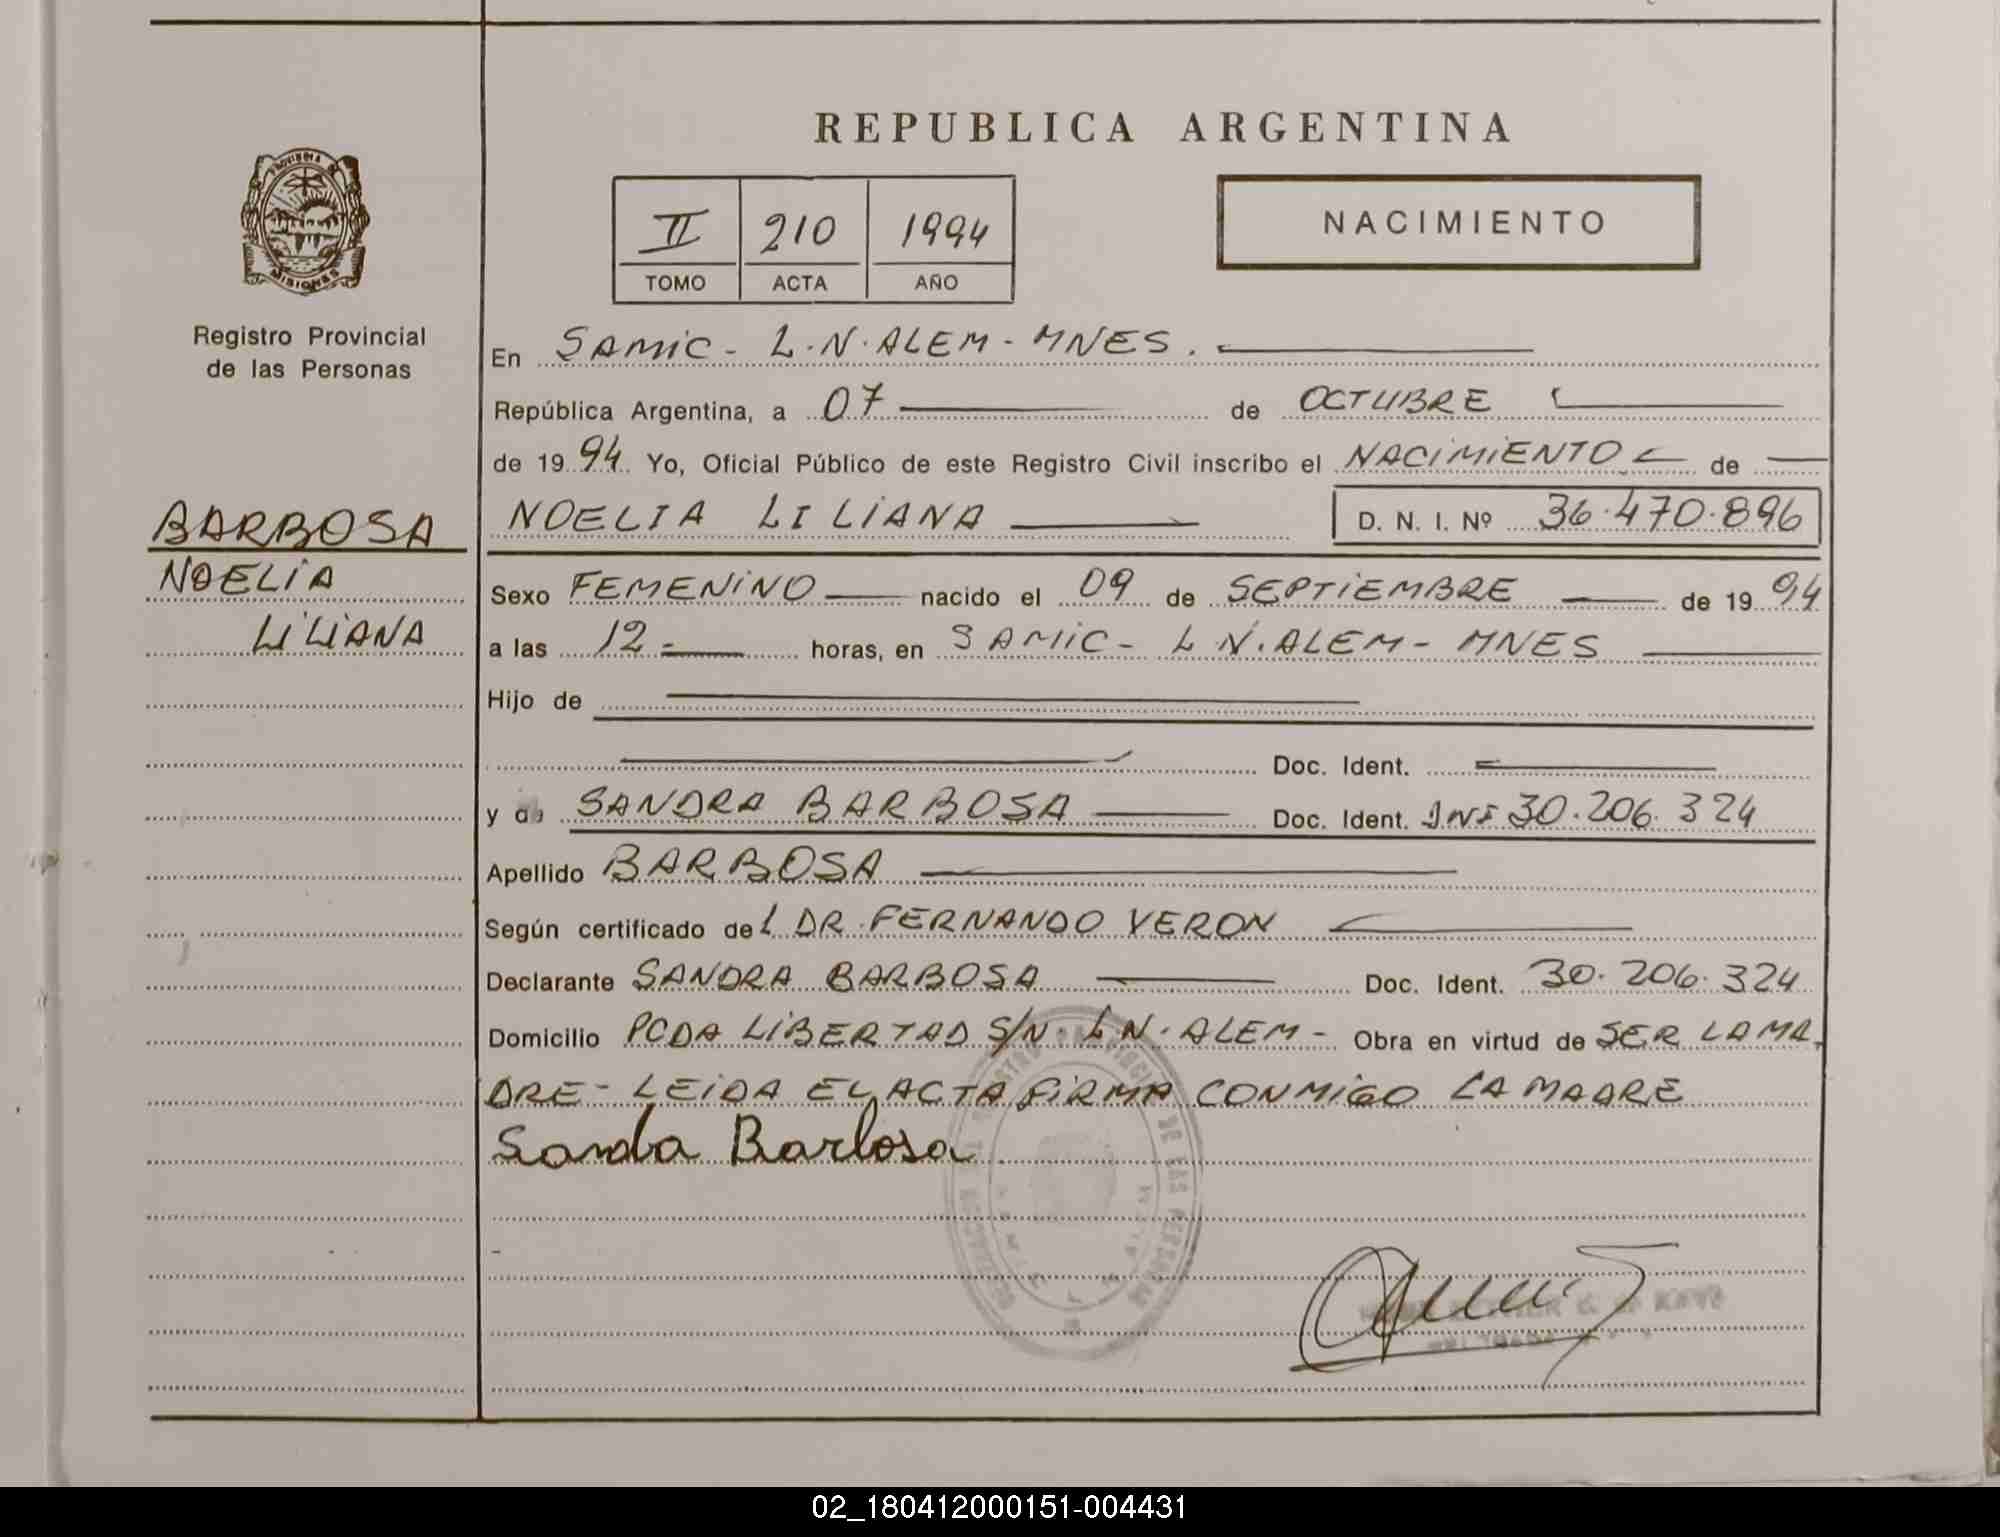 REPUBLICA ARGENTINA
PROVINCIA DE
MISIONES
Registro Provincial
de las Personas
II 210 1994
TOMO ACTA AÑO
NACIMIENTO
En SAMIC - L.N.ALEM - MNES.
República Argentina, a 07 de OCTUBRE
de 1994 Yo, Oficial Público de este Registro Civil inscribo el NACIMIENTO de
BARBOSA
NOELIA
LILIANA
NOELIA LILIANA D. N. I. Nº 36.470.896
Sexo FEMENINO nacido el 09 de SEPTIEMBRE de 1994
a las 12 horas, en SAMIC - L N.ALEM - MNES
Hijo de
Doc. Ident.
y de SANDRA BARBOSA Doc. Ident. DNI 30.206.324
Apellido BARBOSA
Según certificado del DR. FERNANDO VERON
Declarante SANDRA BARBOSA Doc. Ident. 30.206.324
Domicilio PCDA LIBERTAD S/N L.N.ALEM - Obra en virtud de SER LA MA
DRE - LEIDA EL ACTA FIRMA CONMIGO LA MADRE
Sanda Barbosa
02_180412000151-004431